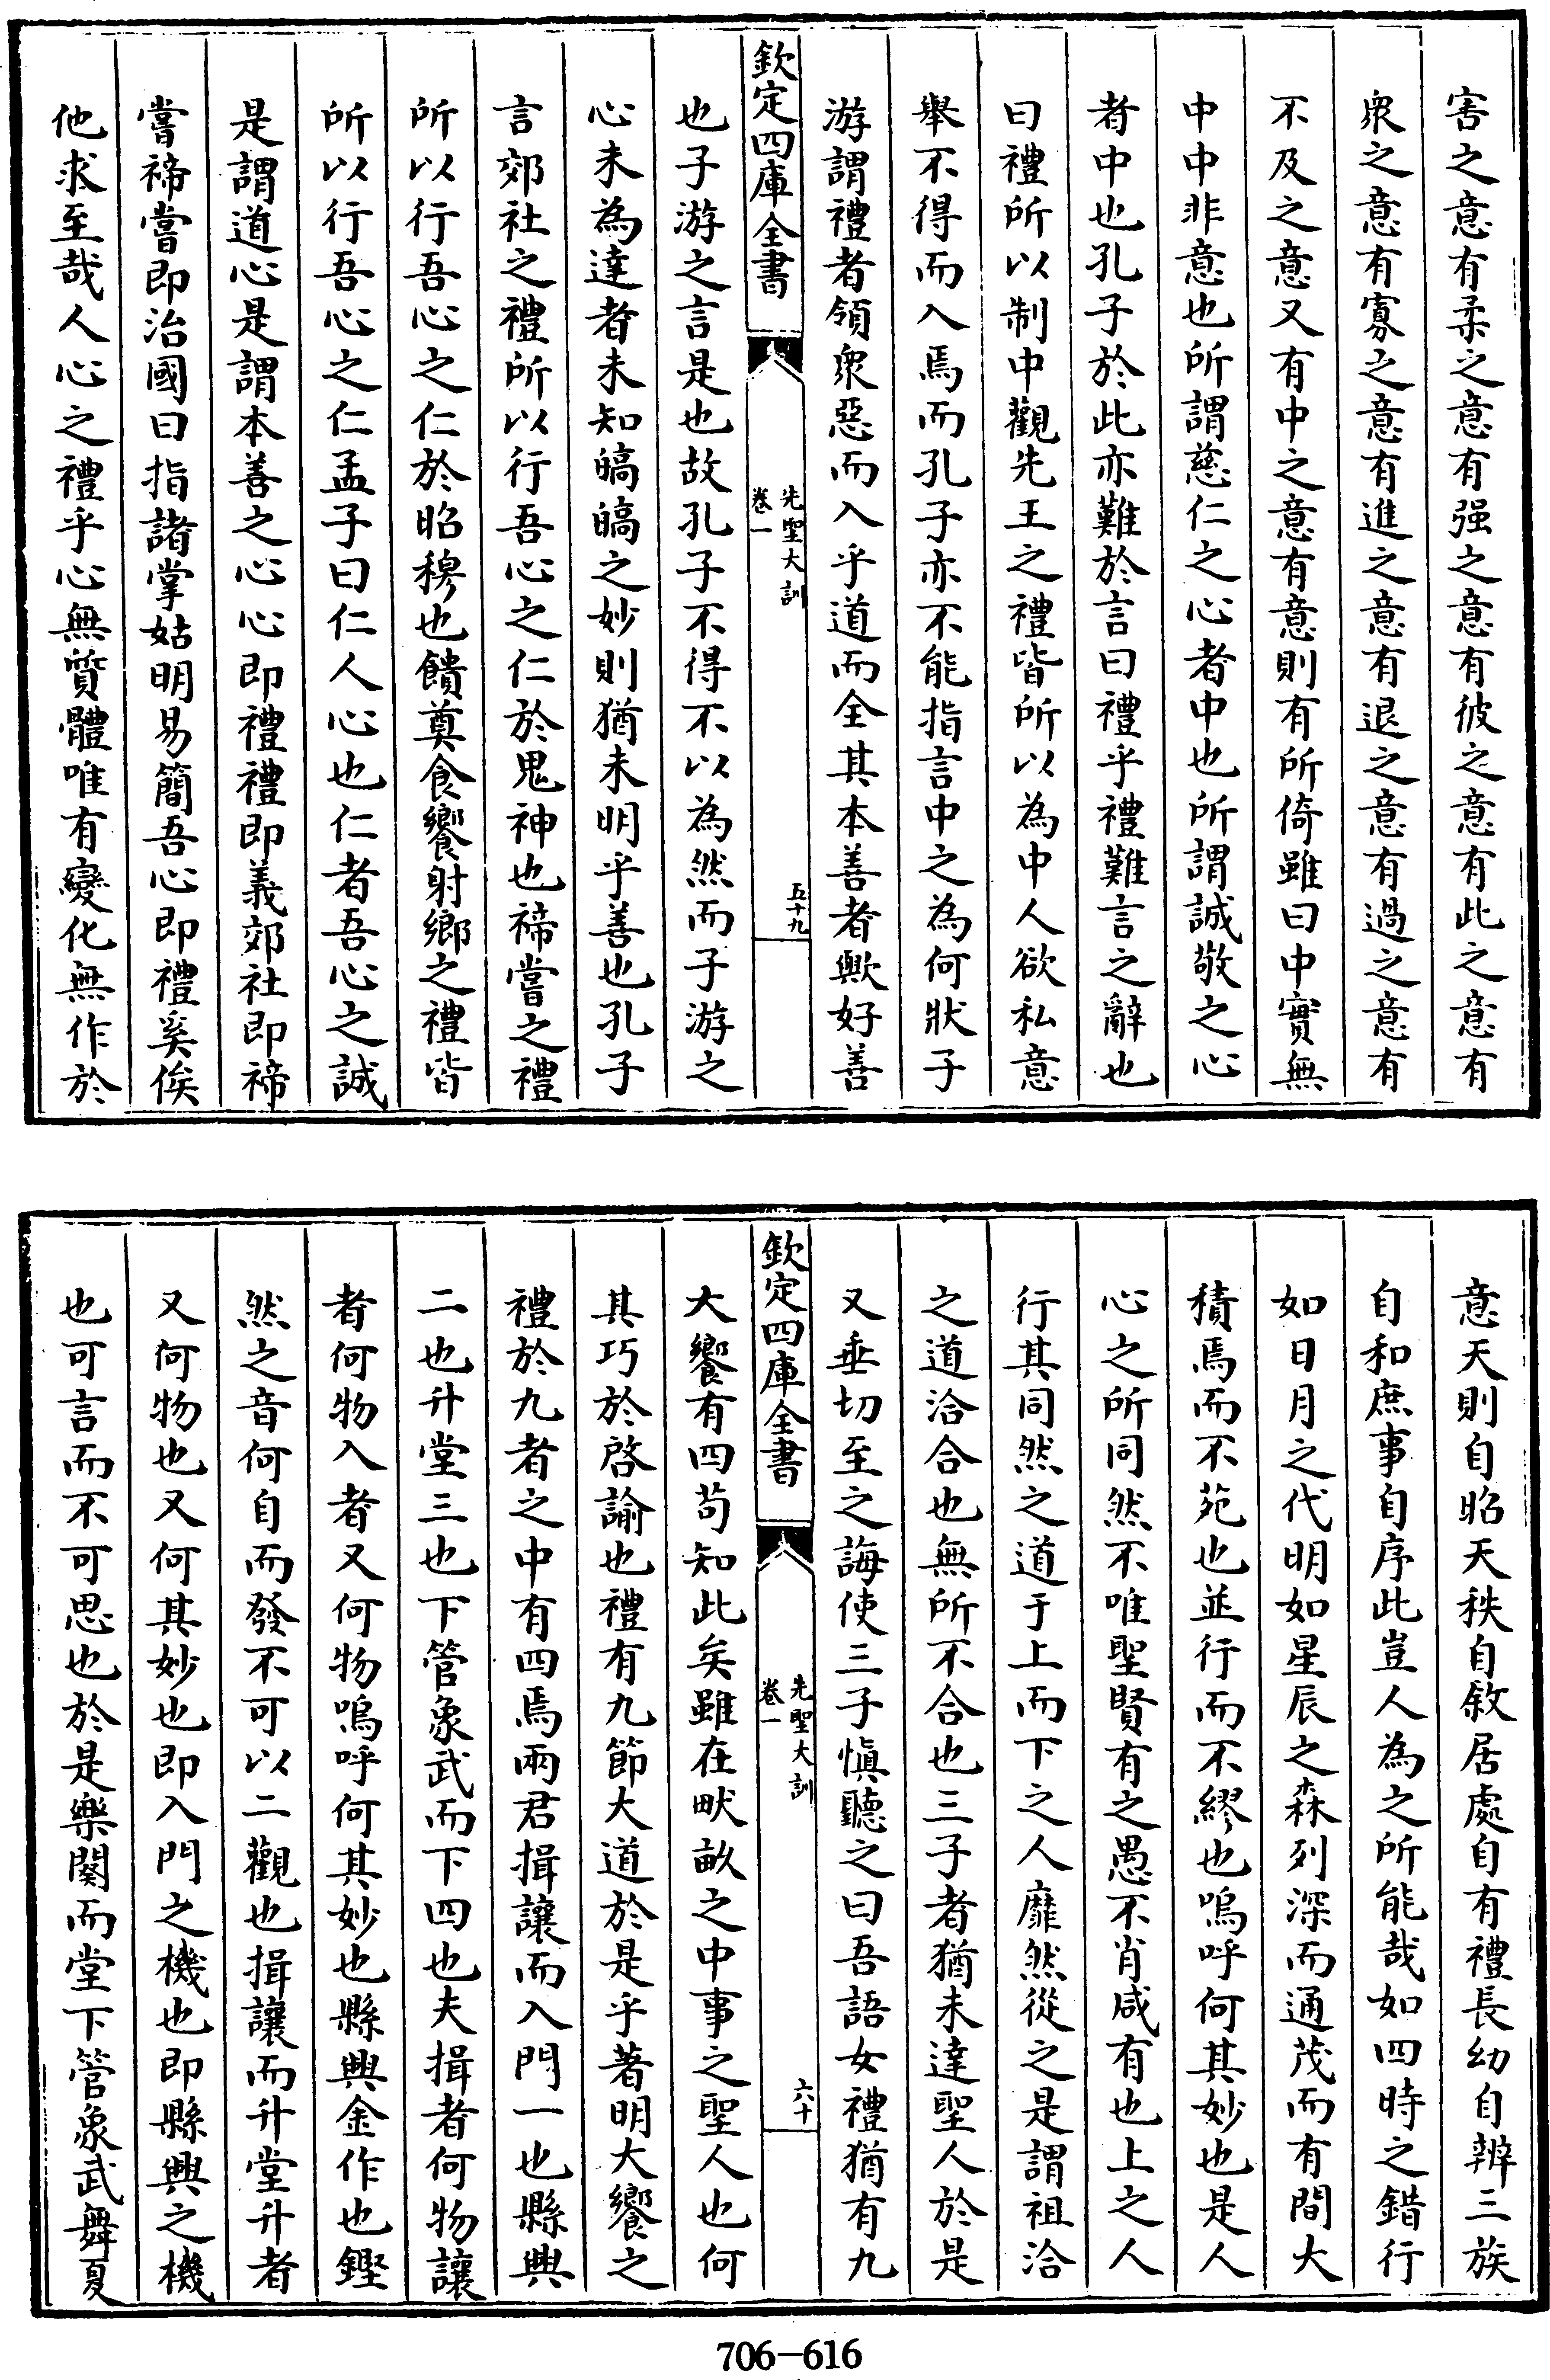 害之意有柔之意有强之意有彼之意有此之意有
衆之意有寡之意有進之意有退之意有過之意有
不及之意又有中之意有意則有所倚雖曰中實無
中中非意也所謂慈仁之心者中也所謂誠敬之心
者中也孔子於此亦難於言曰禮乎禮難言之辭也
曰禮所以制中觀先王之禮皆所以為中人欲私意
舉不得而入焉而孔子亦不能指言中之為何狀子
游謂禮者領衆惡而入乎道而全其本善者歟好善
欽定四庫全書
先聖大訓
卷一
五十九
也子游之言是也故孔子不得不以為然而子游之
心未為達者未知皜皜之妙則猶未明乎善也孔子
言郊社之禮所以行吾心之仁於鬼神也禘嘗之禮
所以行吾心之仁於昭穆也饋奠食饗射鄉之禮皆
所以行吾心之仁孟子曰仁人心也仁者吾心之誠
是謂道心是謂本善之心心即禮禮即義郊社即禘
嘗禘嘗即治國曰指諸掌姑明易簡吾心即禮奚俟
他求至哉人心之禮乎心無質體唯有變化無作於
意天則自昭天秩自敘居處自有禮長幼自辨三族
自和庶事自序此豈人為之所能哉如四時之錯行
如日月之代明如星辰之森列深而通茂而有間大
積焉而不苑也並行而不繆也嗚呼何其妙也是人
心之所同然不唯聖賢有之愚不肖咸有也上之人
行其同然之道于上而下之人靡然從之是謂祖洽
之道洽合也無所不合也三子者猶未達聖人於是
又垂切至之誨使三子慎聽之曰吾語女禮猶有九
欽定四庫全書
先聖大訓
卷一
六十
大饗有四苟知此矣雖在畎畝之中事之聖人也何
其巧於啓諭也禮有九節大道於是乎著明大饗之
禮於九者之中有四焉兩君揖讓而入門一也縣興
二也升堂三也下管象武而下四也夫揖者何物讓
者何物入者又何物嗚呼何其妙也縣興金作也鏗
然之音何自而發不可以二觀也揖讓而升堂升者
又何物也又何其妙也即入門之機也即縣興之機
也可言而不可思也於是樂闋而堂下管象武舞夏
706-616